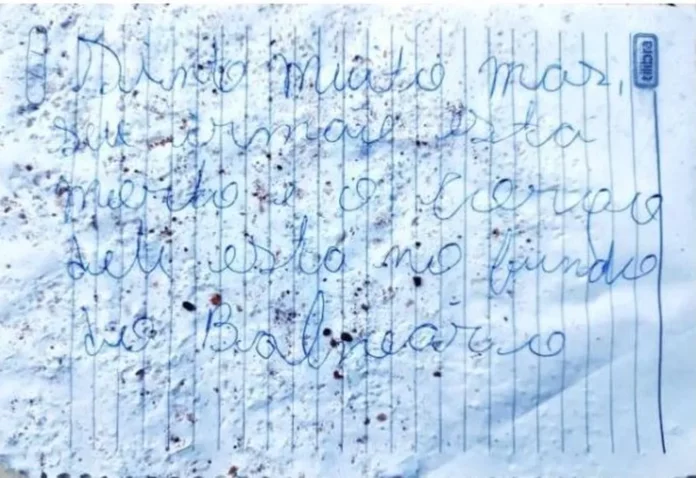 Sinto muito mas,
seu irmão esta
morto e o corpo
dele esta no fundo
do Balneário
tilibra